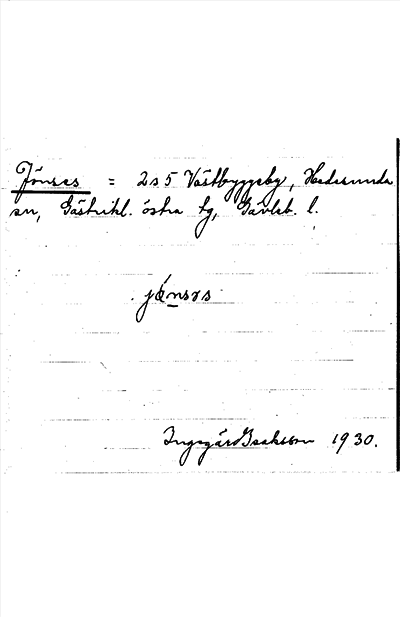 Jönses = 2 a 5 Västbyggeby, Hedesunda
sn, Gästrikl. östra tg, Gävleb. l.
Ingegärd Isaksson 1930.